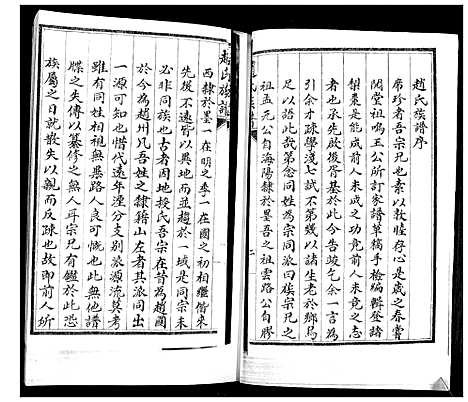 趙氏族譜序
席珍者吾宗兄也素以敦惺存心是春嘗
閱堂祖鳴玉公所訂家譜草稿手檢編輯登諸
梨棗是能成前人未成之功竟前人未竟之志
者也承先啟後胥基於此今告竣乞余一言為
引余才疎學淺七試不第幾以諸生老於鄉烏
足以語此哉第念同姓為宗同宗為族宗兄之
祖孟元公自海陽隸於墨吾之祖雲路公自膠
西隸於墨一在明之季一在國之初相繼偕來
先後不遠皆以異地而並趨於一域是同宗未
必非同族也古者因地授氏吾宗在昔為趙國
於今為趙州凡吾姓之隸籍山左者其派同出
一源可知也惜代遠年湮分支別派源流莫考
雖有同姓相視無異路人良可慨也此無他譜
牒之失傳以纂修之無人耳宗兄有鑑於此恐
族屬之日就散失以親而反疎也故即前人所
趙氏族譜